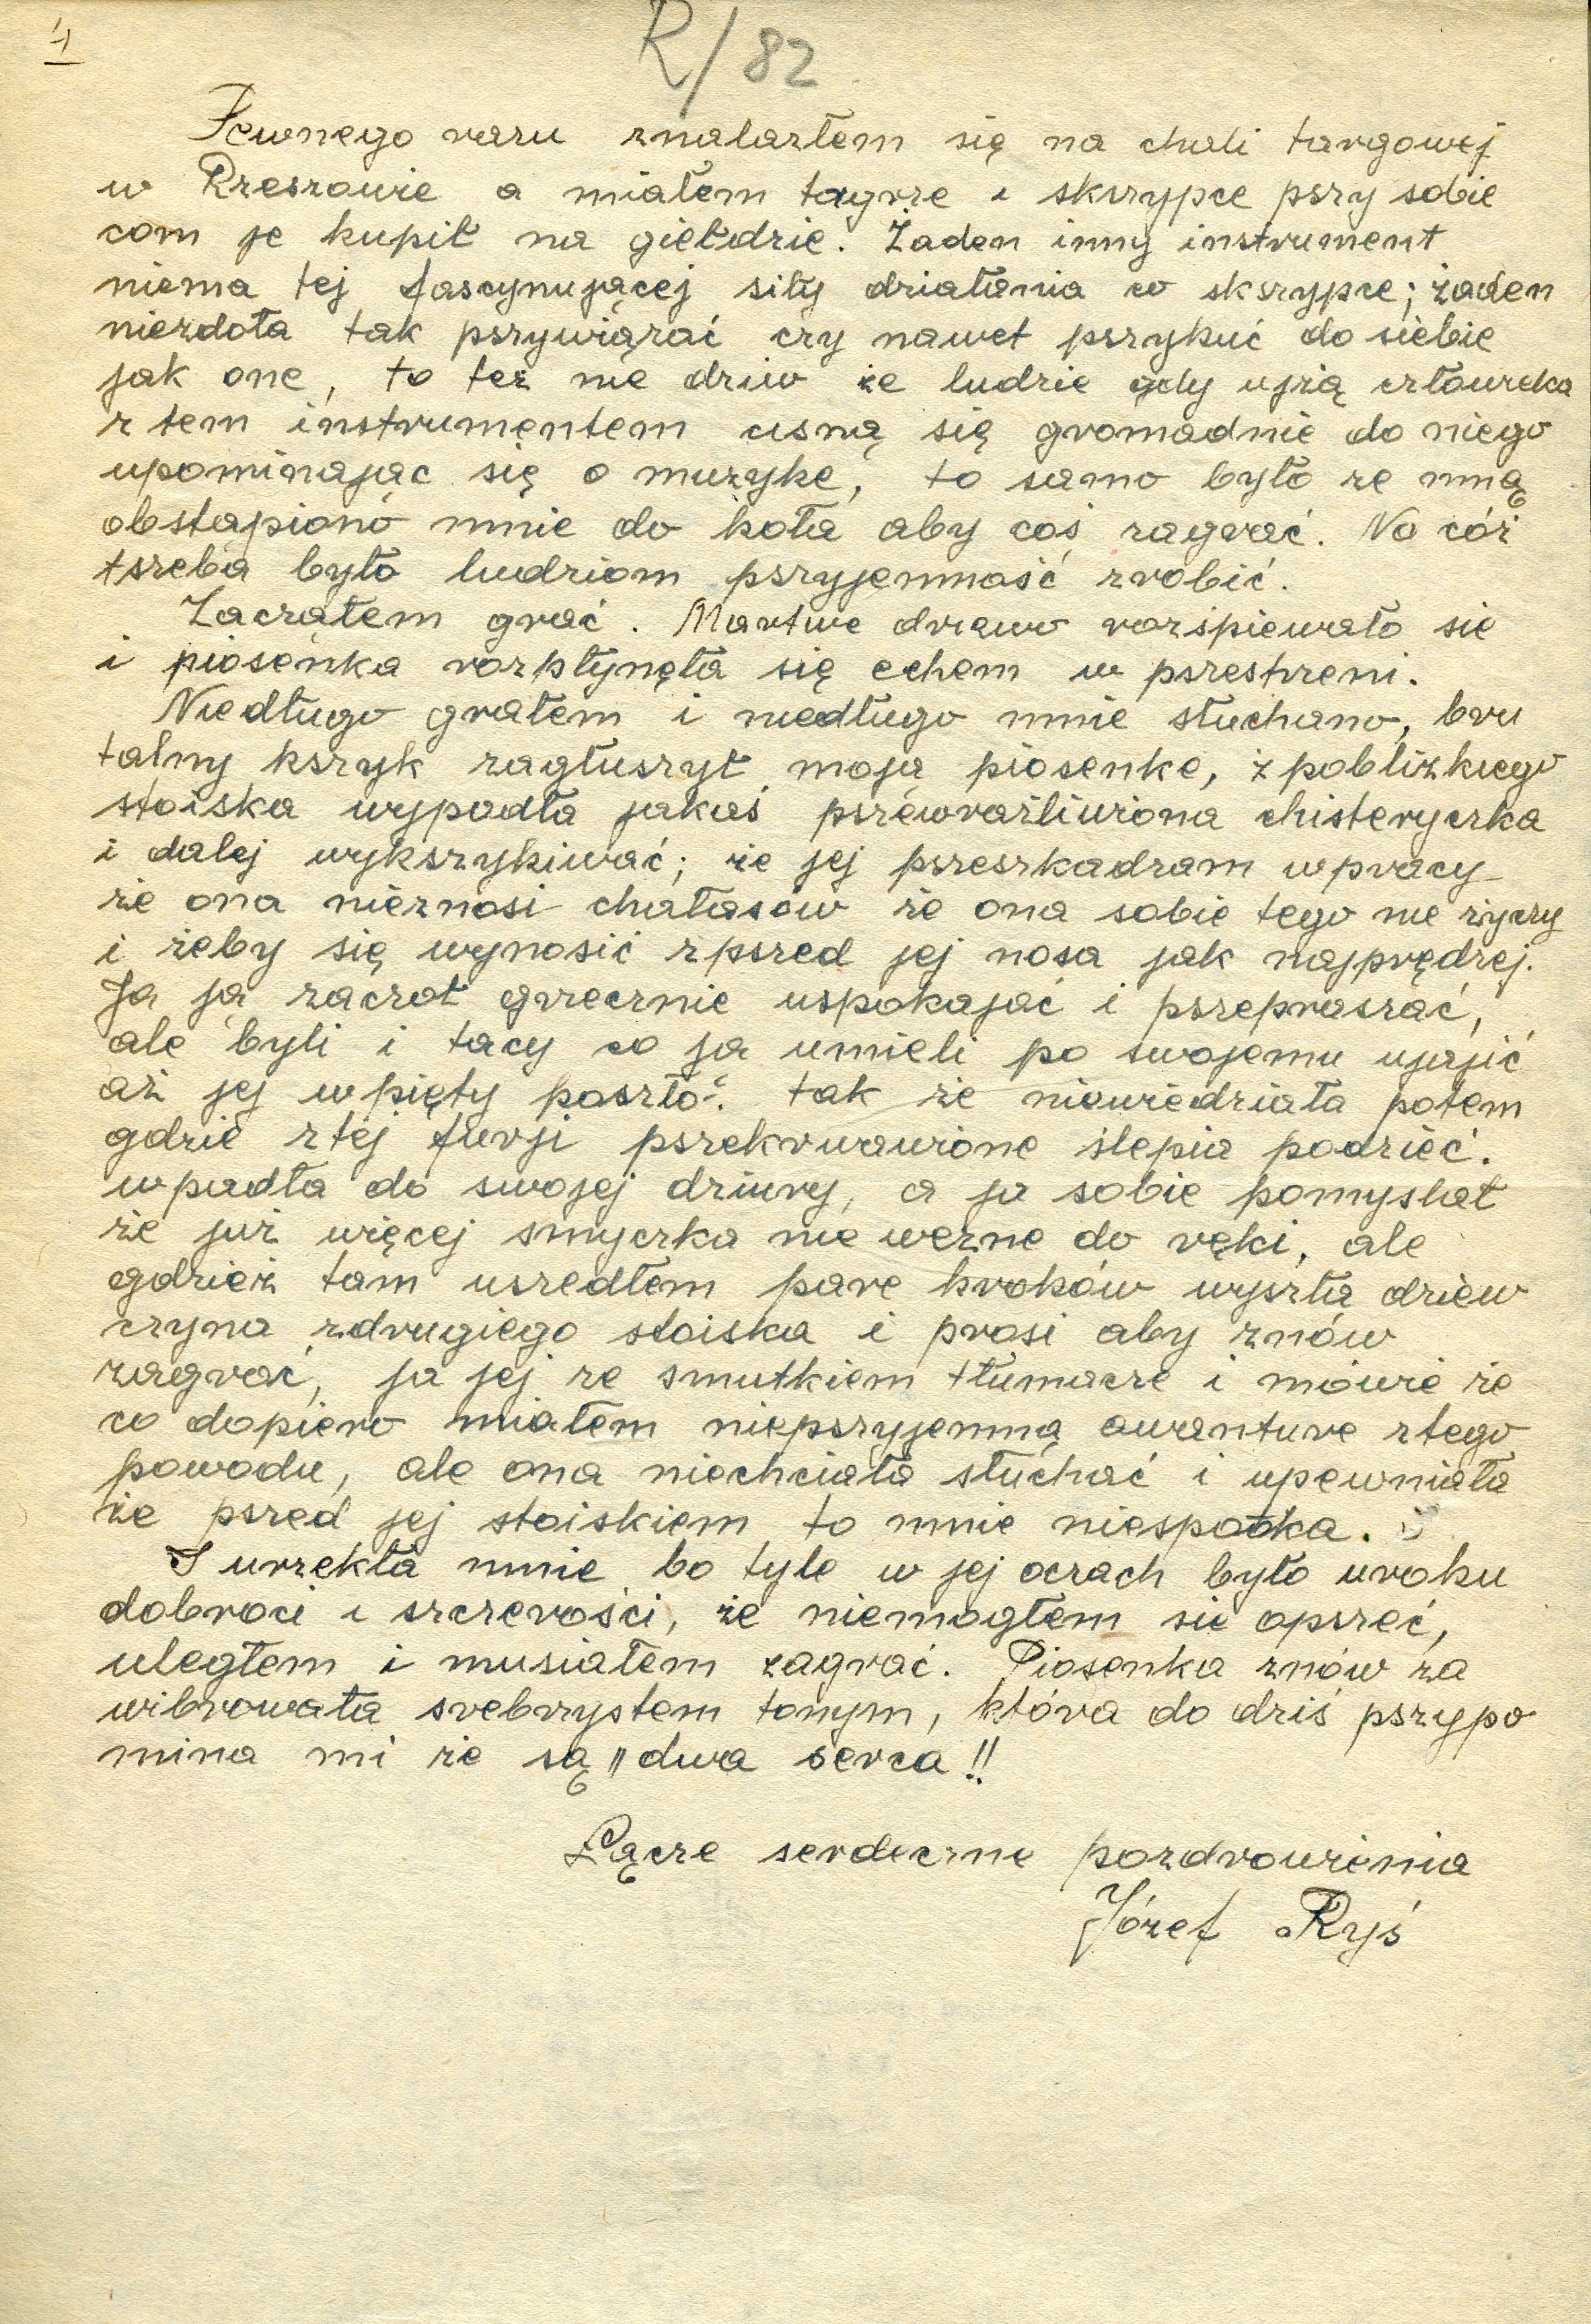 1
R/82
Pewnego razu znalazłem się na chali targowej
w Rzeszowie a miałem tagrze i skszypce pszy sobie
com je kupił na giełdzie. Żaden inny instrument
niema tej fascynującej siły działania co skszypce; żaden
niezdoła tak pszywiązać czy nawet pszykuć do siebie
jak one, to też nie dziw że ludzie gdy ujżą człowieka
z tem instrumentem cisną się gromadnie do niego
upominając się o muzyke, to samo było ze mną
obstąpiono mnie do koła aby coś zagrać. No cóż
tszeba było ludziom pszyjemność zrobić.
Zaczałem grać. Martwe drzewo rozśpiewało sie
i piosenka rozpłynęła się echem w pszestrzeni.
Niedługo grałem i niedługo mnie słuchano, bru
talny kszyk zagłuszył moją piosenke, z pobliżkiego
stoiska wypadła jakaś pszewrażliwiona chisteryczka
i dalej wykszykiwać; że jej pszeszkadzam wpracy
że ona nieznosi chałasów że ona sobie tego nie życzy
i żeby się wynosić zpszed jej nosa jak najprędzej.
Ja ją zaczoł grzecznie uspokajać i pszepraszać,
ale byli i tacy co ją umieli po swojemu ujajić
aż jej wpięty poszło. tak że niewiedziała potem
gdzie ztej furji pszekrwawione ślepia podzieć.
wpadła do swojej dziury, a ja sobie pomyslał
że już więcej smyczka nie wezne do ręki, ale
gdzież tam uszedłem pare kroków wyszła dziew
czyna zdrugiego stoiska i prosi aby znów
zagrać, ja jej ze smutkiem tłumacze i mówie że
co dopiero miałem niepszyjemną awanture ztego
powodu, ale ona niechciała słuchać i upewniała
że pszed jej stoiskiem to mnie niespotka.
I urzekła mnie bo tyle w jej oczach było uroku
dobroci i szczerości, że niemogłem sie opszeć,
uległem i musiałem zagrać. Piosenka znów za
wibrowała srebrzystem tonym, która do dziś pszypo
mina mi że są "dwa serca!!
Łącze serdeczne pozdrowienia
Józef Ryś